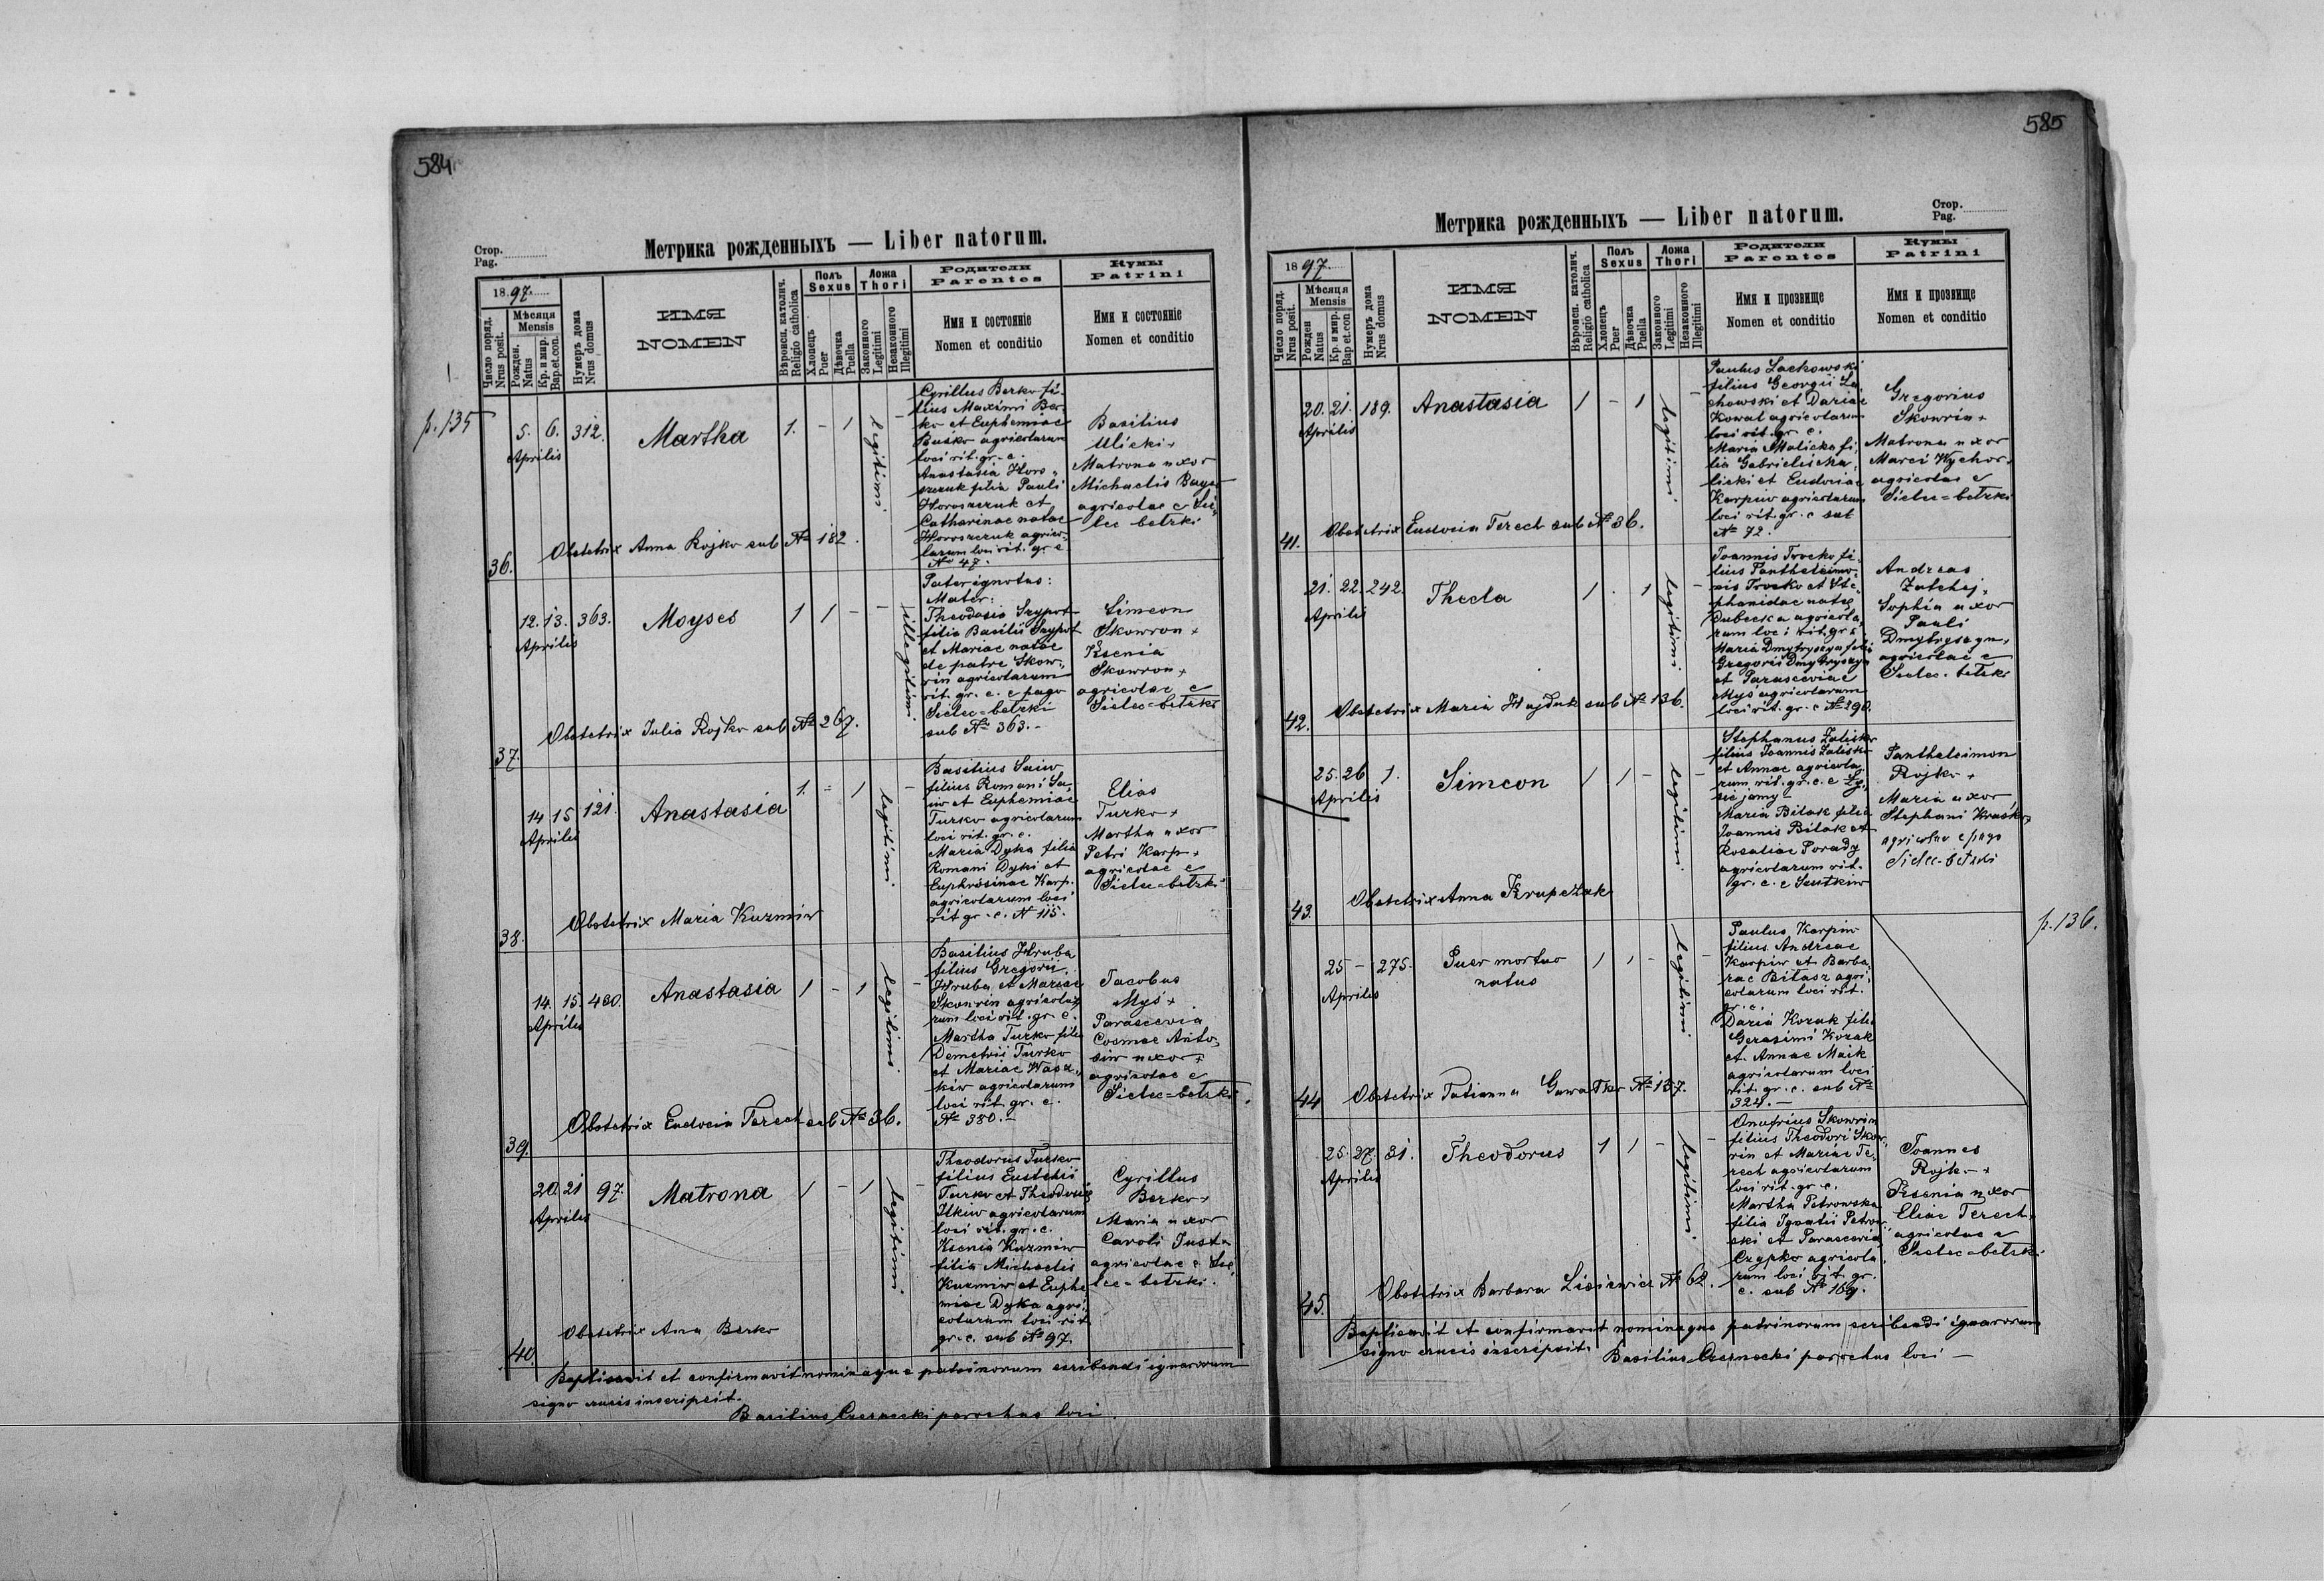 584
Стор.
Pag.
Метрика рожденныхъ — Liber natorum.
1897
Число поряд.
Nrus posit.
Мѣсяця
Mensis
Рожден.
Natus
Кр. и мир.
Bap.et.con.
Нумеръ дома
Nrus domus
ИМЯ
NOMEN
Вѣроисп. католич.
Religio catholica
Полъ
Sexus
Хлопецъ
Puer
Дѣвочка
Puella
Ложа
Thori
Законного
Legitimi
Незаконного
Illegitimi
Родители
Parentes
Имя и состояніе
Nomen et conditio
Кумы
Patrini
Имя и состояніе
Nomen et conditio
p. 135
36.
5. 6. 312.
Aprilis
Martha
1. - 1
legitimi
-
Cyrillus Berko fi-
lius Maximi Ber-
ko et Euphemiae
Busko agricolarum
loci rit. gr. c.
Anastasia Horo-
szczuk filia Pauli
Horoszczuk et
Catharinae natae
Horoszczuk agrico-
larum loci rit. gr. c.
№ 47.
Basilius
Ulicki +
Matrona uxor
Michaelis
agricolae e Sie-
lec bełzki
Obstetrix Anna Rojko sub № 182.
37.
12. 13. 363.
Aprilis
Moyses
1 1 - -
illegitimi
Pater ignotus:
Mater:
Theodosia Szyport
filia Basilii Szyport
et Mariae natae
de patre Skow-
rin agricolarum
rit. gr. c. e pago
Sielec=bełzki
sub № 363.-
Simeon
Skowron +
Ksenia
Skowron +
agricolae e
Sielec=bełzki
Obstetrix Julia Rojko sub № 267.
38.
14 15 121.
Aprilis
Anastasia
1. - 1
legitimi
-
Basilius Saiw
filius Romani Sa-
iw et Euphemiae
Turko agricolarum
loci rit. gr. c.
Maria Dyka filia
Romani Dyki et
Euphrosinae Karp.
agricolarum loci
rit gr. c. № 115.
Elias
Turko +
Martha uxor
Petri Karp +
agricolae e
Sielec=bełzki
Obstetrix Maria Kuzmiw
39.
14. 15. 480.
Aprilis
Anastasia
1 - 1
legitimi
-
Basilius Hruba
filius Gregorii
Hruba et Mariae
Skowrin agricola-
rum loci rit. gr. c.
Martha Turko filia
Demetrii Turko
et Mariae Wasz-
kiw agricolarum
loci rit. gr. c.
№ 380.-
Jacobus
Myś +
Parascevia
Cosmae Anto-
siw uxor +
agricolae e
Sielec=bełzki
Obstetrix Eudocia Terech sub № 36.
40.
20. 21 97.
Aprilis
Matrona
1 - 1
legitimi
-
Theodorus Turko
filius Eustchii
Turko et Theodosiae
Ilkiw agricolarum
loci rit. gr. c.
Ksenia Kuzmiw
filia Michaelis
Kuzmiw et Euphe-
miae Dyka agri-
colarum loci rit.
gr. c. sub № 97.
Cyrillus
Berko +
Maria uxor
Caroli
agricolae e Sie-
lec=bełzki.
Obstetrix Ana Berko
Baptisavit et confirmavit nominaque patrinorum scribendi ignarorum
signo crucis inscripsit.
Basilius Czernecki parochus loci.
585
Стор.
Pag.
Метрика рожденныхъ — Liber natorum.
1897
Число поряд.
Nrus posit.
Мѣсяця
Mensis
Рожден
Natus
Кр. и мир.
Bap et.con
Нумеръ дома
Nrus domus
ИМЯ
NOMEN
Вѣроисп. католич.
Religio catholica
Полъ
Sexus
Хлопецъ
Puer
Дѣвочка
Puella
Ложа
Thori
Законного
Legitimi
Незаконного
Illegitimi
Родители
Parentes
Имя и прозвище
Nomen et conditio
Кумы
Patrini
Имя и прозвище
Nomen et conditio
41.
20. 21. 189.
Aprilis
Anastasia
1 - 1
legitimi
-
Paulus Lachowski
filius Georgii La-
chowski et Dariae
Kowal agricolarum
loci rit. gr. c.
Maria Malicka fi-
lia Gabrielis Ma-
licki et Eudociae
Karpiw agricolarum
loci rit. gr. c sub
№ 72.
Gregorius
Skowrin +
Matrona uxor
Marci Wychor +
agricolae e
Sielec=bełzki
Obstetrix Eudocia Terech sub № 36.
42.
21. 22. 242.
Aprilis
Thecla
1 . 1
legitimi
-
Joannis Trocko fi-
lius Pantheleimo-
nis Trocko et Ste-
phanidae natae
Dubecka agricola-
rum loci rit. gr. c.
Maria Dmytryszyn filia
Gregorii Dmytryszyn
et Parasceviae
Myś agricolarum
loci rit. gr. c № 290.
Andreas
+
Sophia uxor
Pauli
Dmytryszyn +
agricolae e
Sielec-bełzki
Obstetrix Maria Hajduk sub № 136.
43.
25. 26 1.
Aprilis
Simeon
1 1 -
legitimi
-
Stephanus Zalisko
filius Joannis Zalisko
et Annae agricola-
rum rit. gr. c. e Ly-
siejamy-
Maria Bilak filia
Joannis Bilak et
Rosaliae Porady
agricolarum rit.
gr. c. e
Pantheleimon
Rojko +
Maria uxor
Stephani +
agricolae e pago
Sielec-bełzki
Obstetrix Anna Krupczak
44
25 - 275.
Aprilis
Puer mortuo
natus
1 1 -
legitimi
-
Paulus Karpiw
filius Andreae
Karpiw et Barba-
rae Bilasz agri-
colarum loci rit.
gr. c.
Daria Kozak filia
Gerasimi Kozak
et Annae Maik
agricolarum loci
rit. gr. c. sub №
324.-
p. 136.
Obstetrix Tatianna № 157.
45.
25. 27. 31.
Aprilis
Theodorus
1 1 -
legitimi
-
Onufrius Skowrin
filius Theodori Skow-
rin et Mariae Te-
rech agricolarum
loci rit. gr. c.
Martha Petrowska
filia Ignatii Petrow-
ski et Parasceviae
Czypko agricola-
rum loci rit. gr.
c. sub № 169.
Joannes
Rojk- +
Ksenia uxor
Eliae Terech +
agricolae e
Sielec=bełzki
Obstetrix Barbara Lisiewicz № 62.
Baptisavit et confirmavit nominaque patrinorum scribendi ignarorum
signo crucis inscripsit. Basilius Czernecki parochus loci -